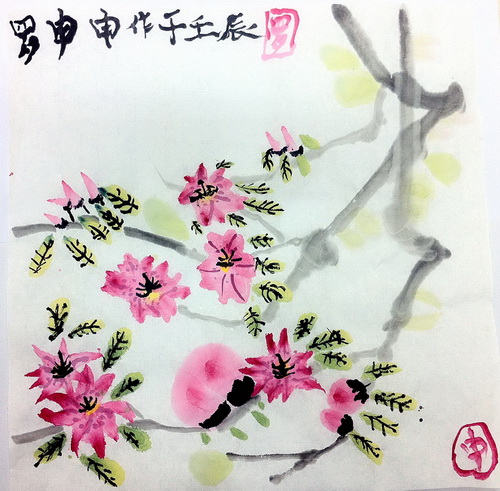 罗申申作于壬辰 罗
申